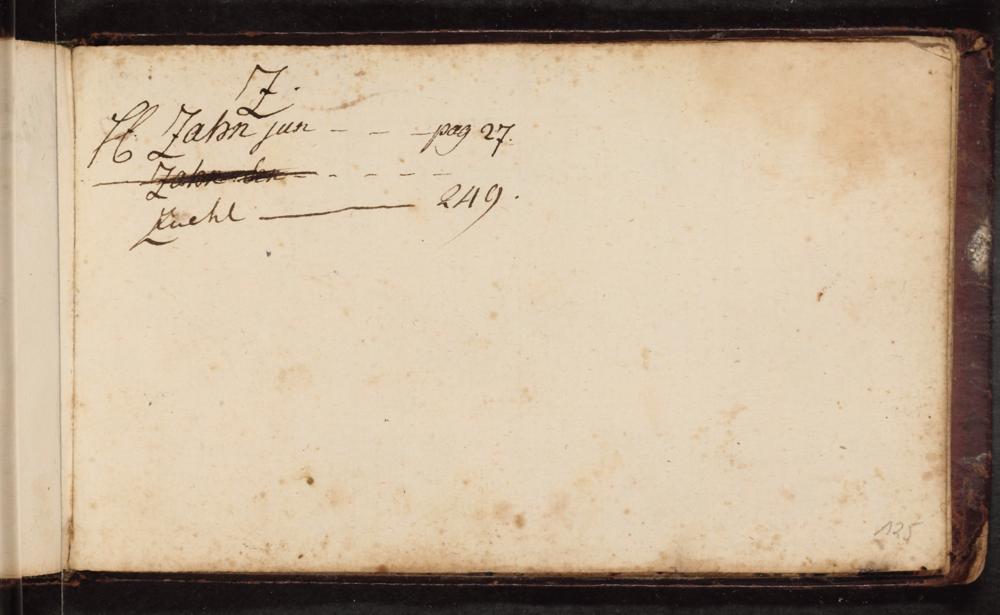 Z.
H. Zahn jun - - - pag 27.
Zahn Sen - - - - -
Zuehl ——— 249.
125